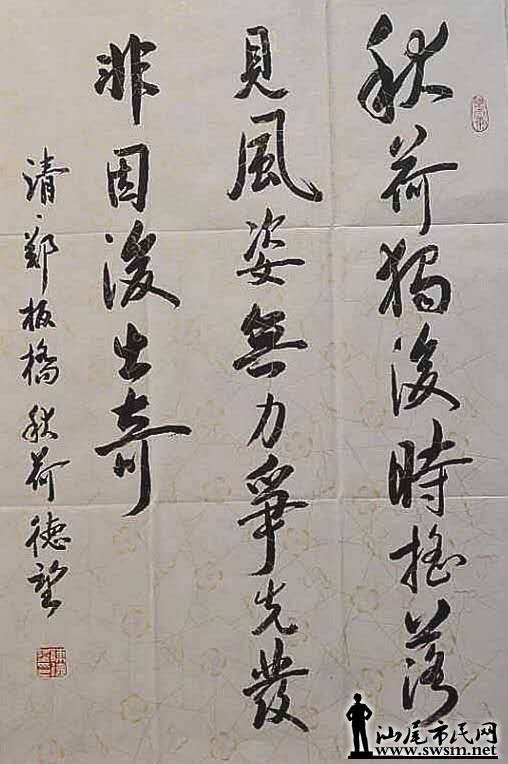 秋荷獨後時搖落
見風姿無力爭先發
非因後出奇
清、鄭板橋秋荷德望
汕尾市民网
www.swsm.net